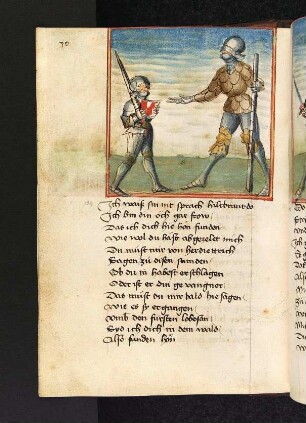 70
Ich waiß sin nit sprach hiltbrant do
Ich bin din och gar frow
Das ich dich hie hon funden
Wie wol du hast abgeelet mich
Du must mir von her dietrich
Sagen zu disen stunden
Ob du in habest erschlagen
Oder ist er din gevangner
Das must du mir bald hie sagen
Wie es sy ergangen
Umb den fürsten lobesan
Syd ich dich in dem wald
Also funden hon